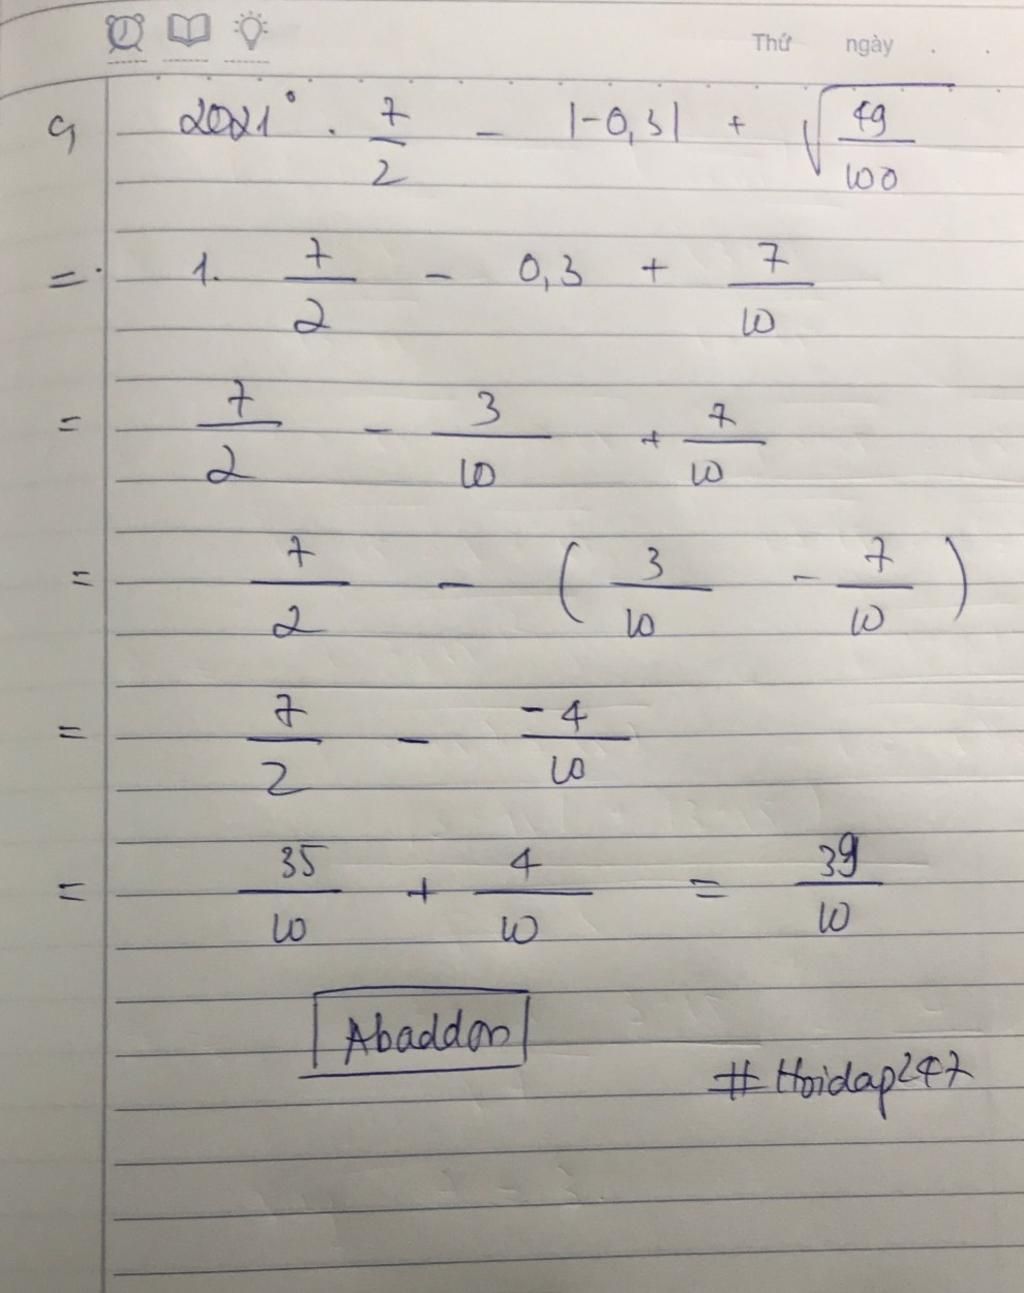 Thứ ngày . .
c, 2021° . 7/2 - |-0,3| + √49/100
= 1. 7/2 - 0,3 + 7/10
= 7/2 - 3/10 + 7/10
= 7/2 - (3/10 - 7/10)
= 7/2 - -4/10
= 35/10 + 4/10 = 39/10
Abaddon
#Hoidap247